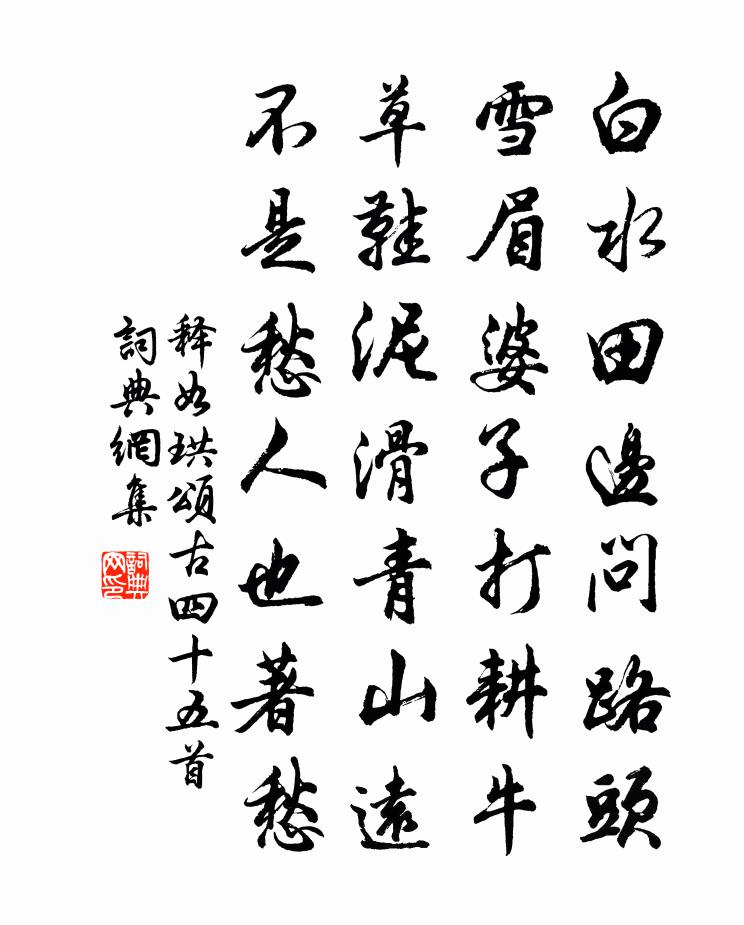 白水田邊問路頭
雪眉婆子打耕牛
草鞋泥滑青山遠
不是愁人也著愁
释如珙頌古四十五首
詞典網集
詞典網印